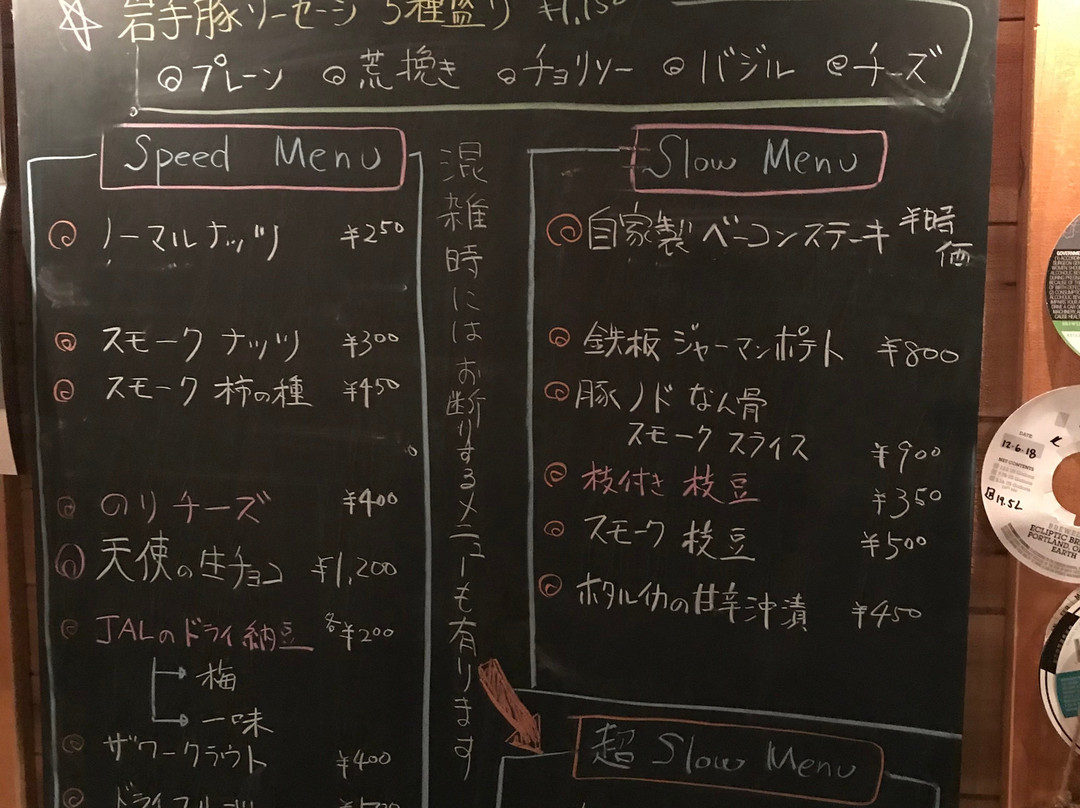 ☆ 岩手豚ソーセージ 5種盛り ¥1,150
◎プレーン ◎荒挽き ◎チョリソー ◎バジル ◎チーズ
Speed Menu
◎ノーマルナッツ ¥250
◎スモークナッツ ¥300
◎スモーク柿の種 ¥450
◎のりチーズ ¥400
◎天使の生チョコ ¥1,200
◎JALのドライ納豆 各¥200
梅
一味
◎ザワークラウト ¥400
混雑時にはお断りするメニューも有ります
Slow Menu
◎自家製ベーコンステーキ ¥時価
◎鉄板ジャーマンポテト ¥800
◎豚ノドなん骨
スモークスライス ¥900
◎枝付き枝豆 ¥350
◎スモーク枝豆 ¥500
◎ホタルイカの甘辛沖漬 ¥450
超 Slow Menu
DATE
12-6-18
NET CONTENTS
19.5L
ECLIPTIC
PORTLAND,
EARTH